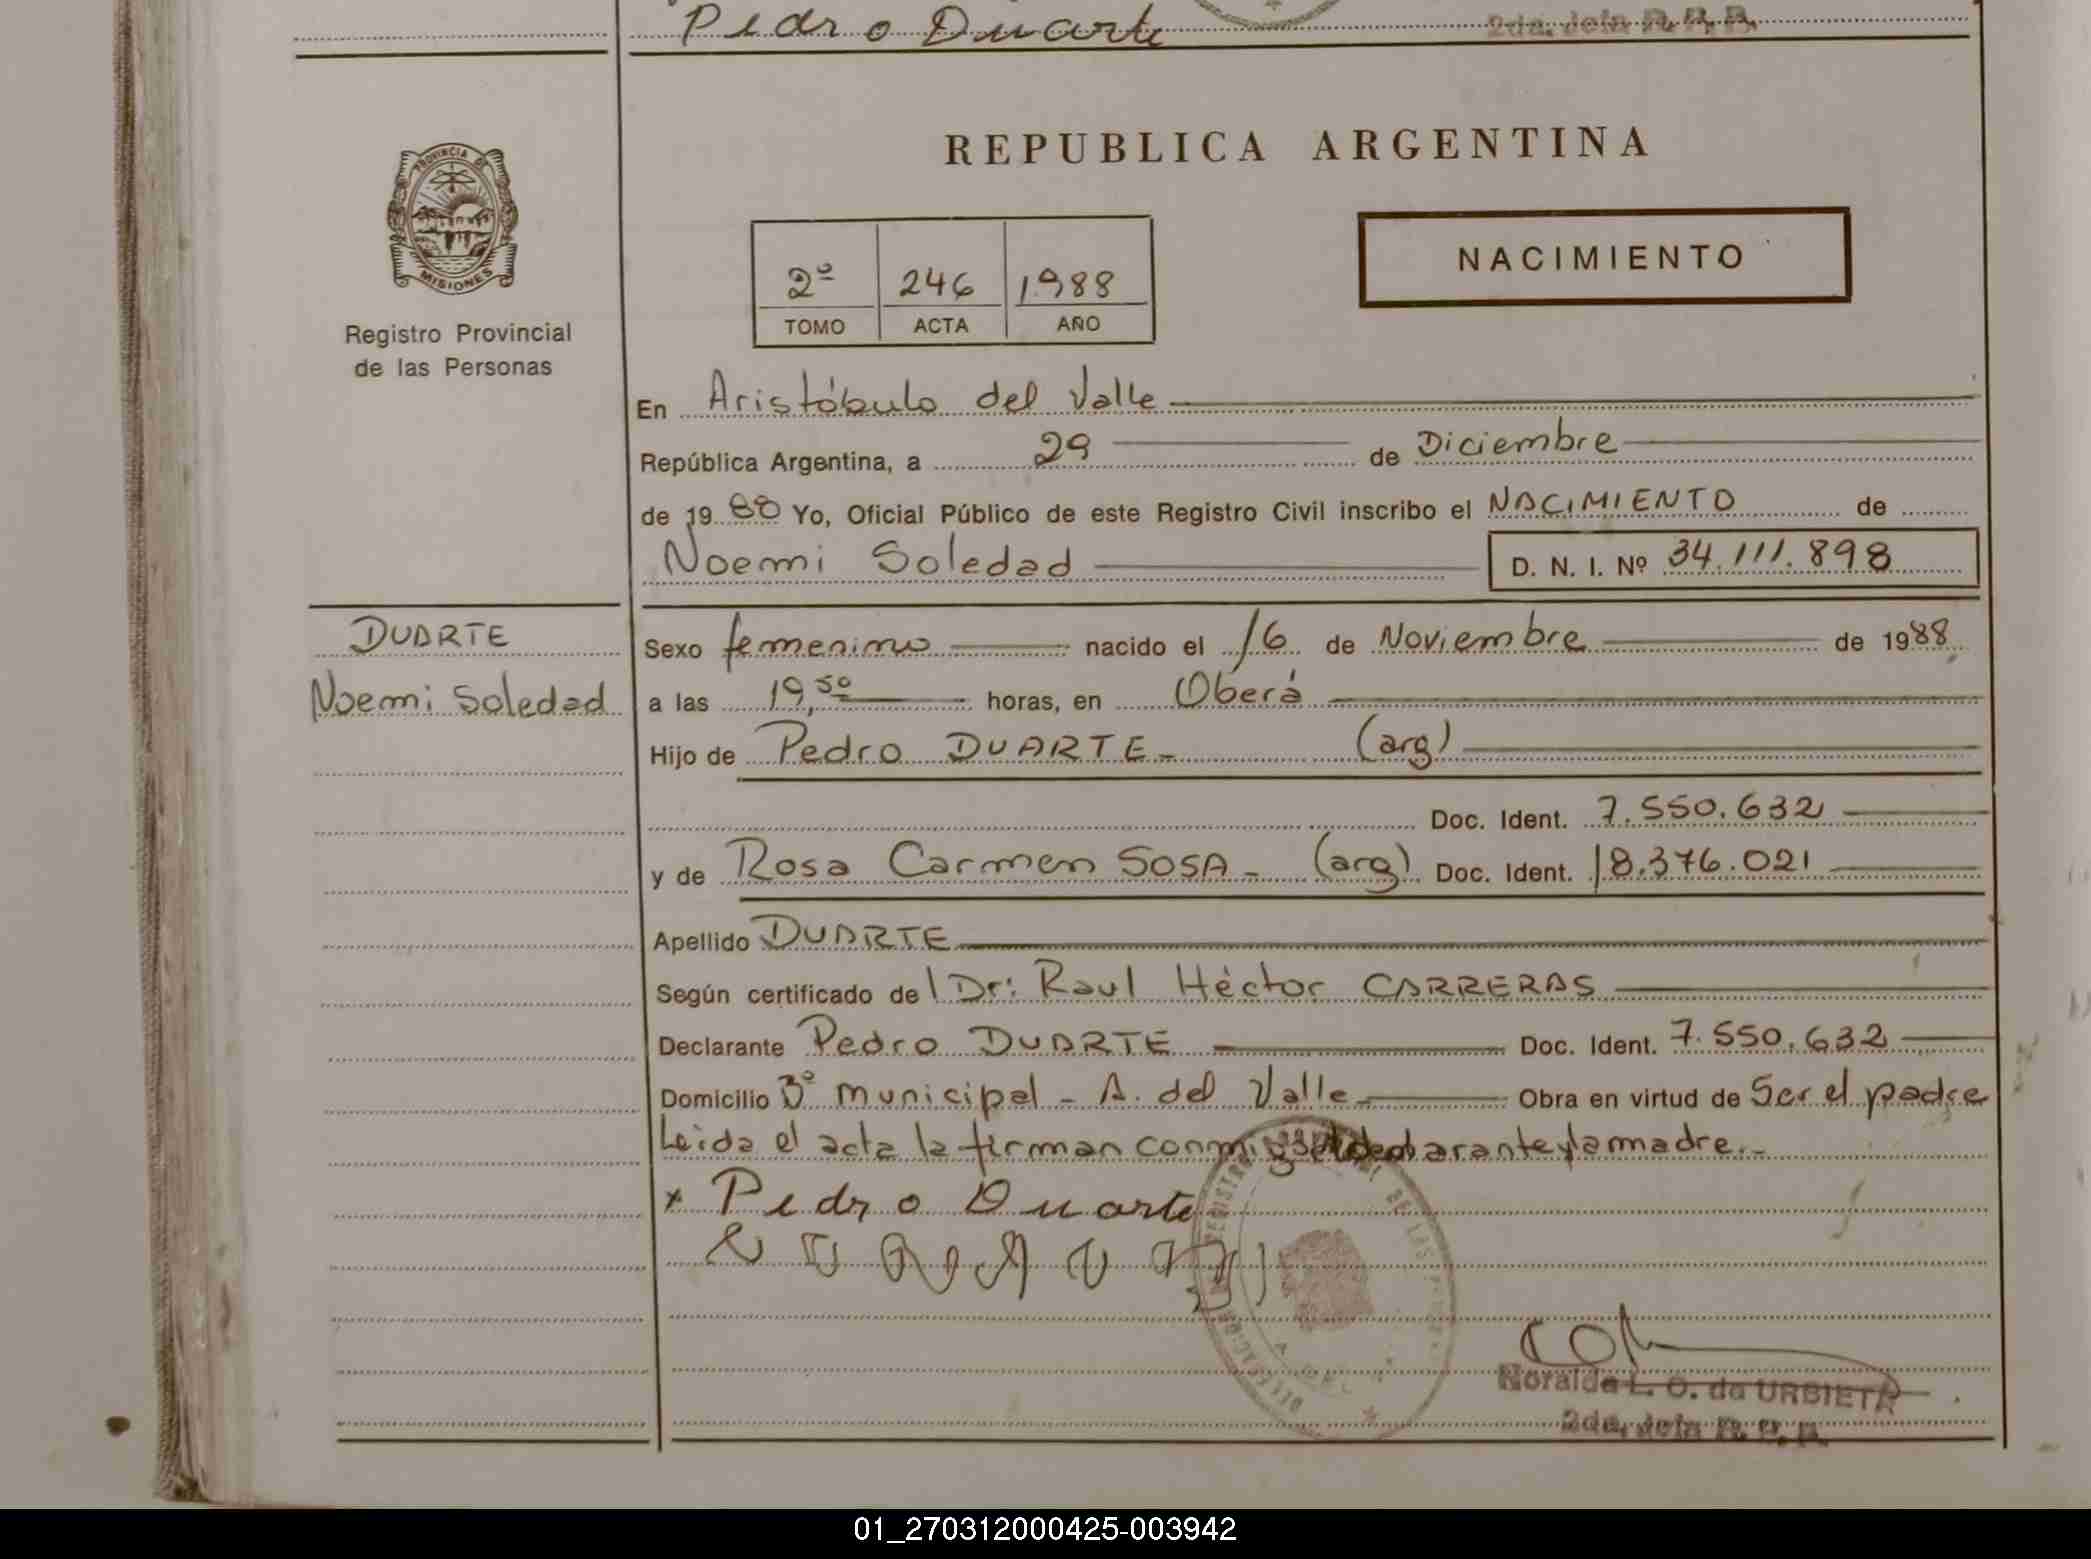 Pedro Duarte
2da. Jefa R. P. P.
PROVINCIA DE
MISIONES
Registro Provincial
de las Personas
REPUBLICA ARGENTINA
2º 246 1988
TOMO ACTA AÑO
NACIMIENTO
En Aristóbulo del Valle
República Argentina, a 29 de Diciembre
de 1988 Yo, Oficial Público de este Registro Civil inscribo el NACIMIENTO de
Noemi Soledad D. N. I. Nº 34.111.898
DUARTE
Noemi Soledad
Sexo femenino nacido el 16 de Noviembre de 1988
a las 19,50 horas, en Oberá
Hijo de Pedro DUARTE - (arg)
Doc. Ident. 7.550.632
y de Rosa Carmen SOSA - (arg) Doc. Ident. 18.376.021
Apellido DUARTE
Según certificado del Dr: Raul Héctor CARRERAS
Declarante Pedro DUARTE Doc. Ident. 7.550.632
Domicilio Bº Municipal - A. del Valle Obra en virtud de Ser el padre
Leida el acta la firman conmigo el declarante y la madre.-
x Pedro Duarte
REGISTRO DE LAS
DELEGACION
Noralda L. O. de URBIETA
2da. Jefa R. P. P.
01_270312000425-003942